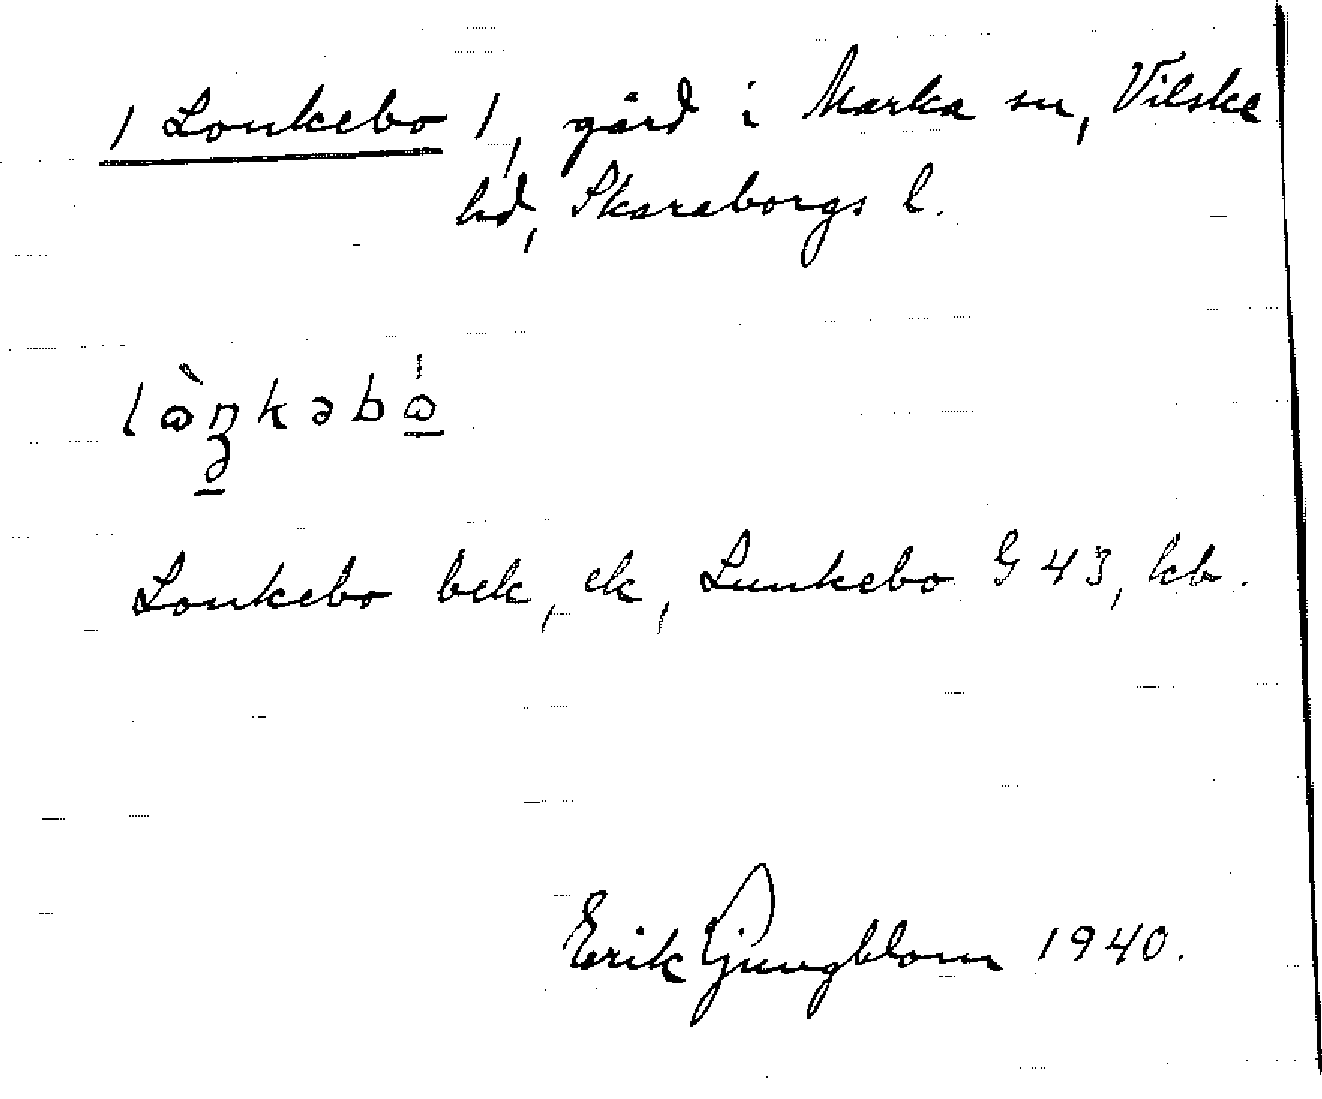 / Lonkebo /, gård i Marka sn, Vilske
hd, Skaraborgs l.
lὼŋkəbώ̲
Lonkebo bek, ek, Lunkebo G 43, kb.
Erik Ljungblom 1940.